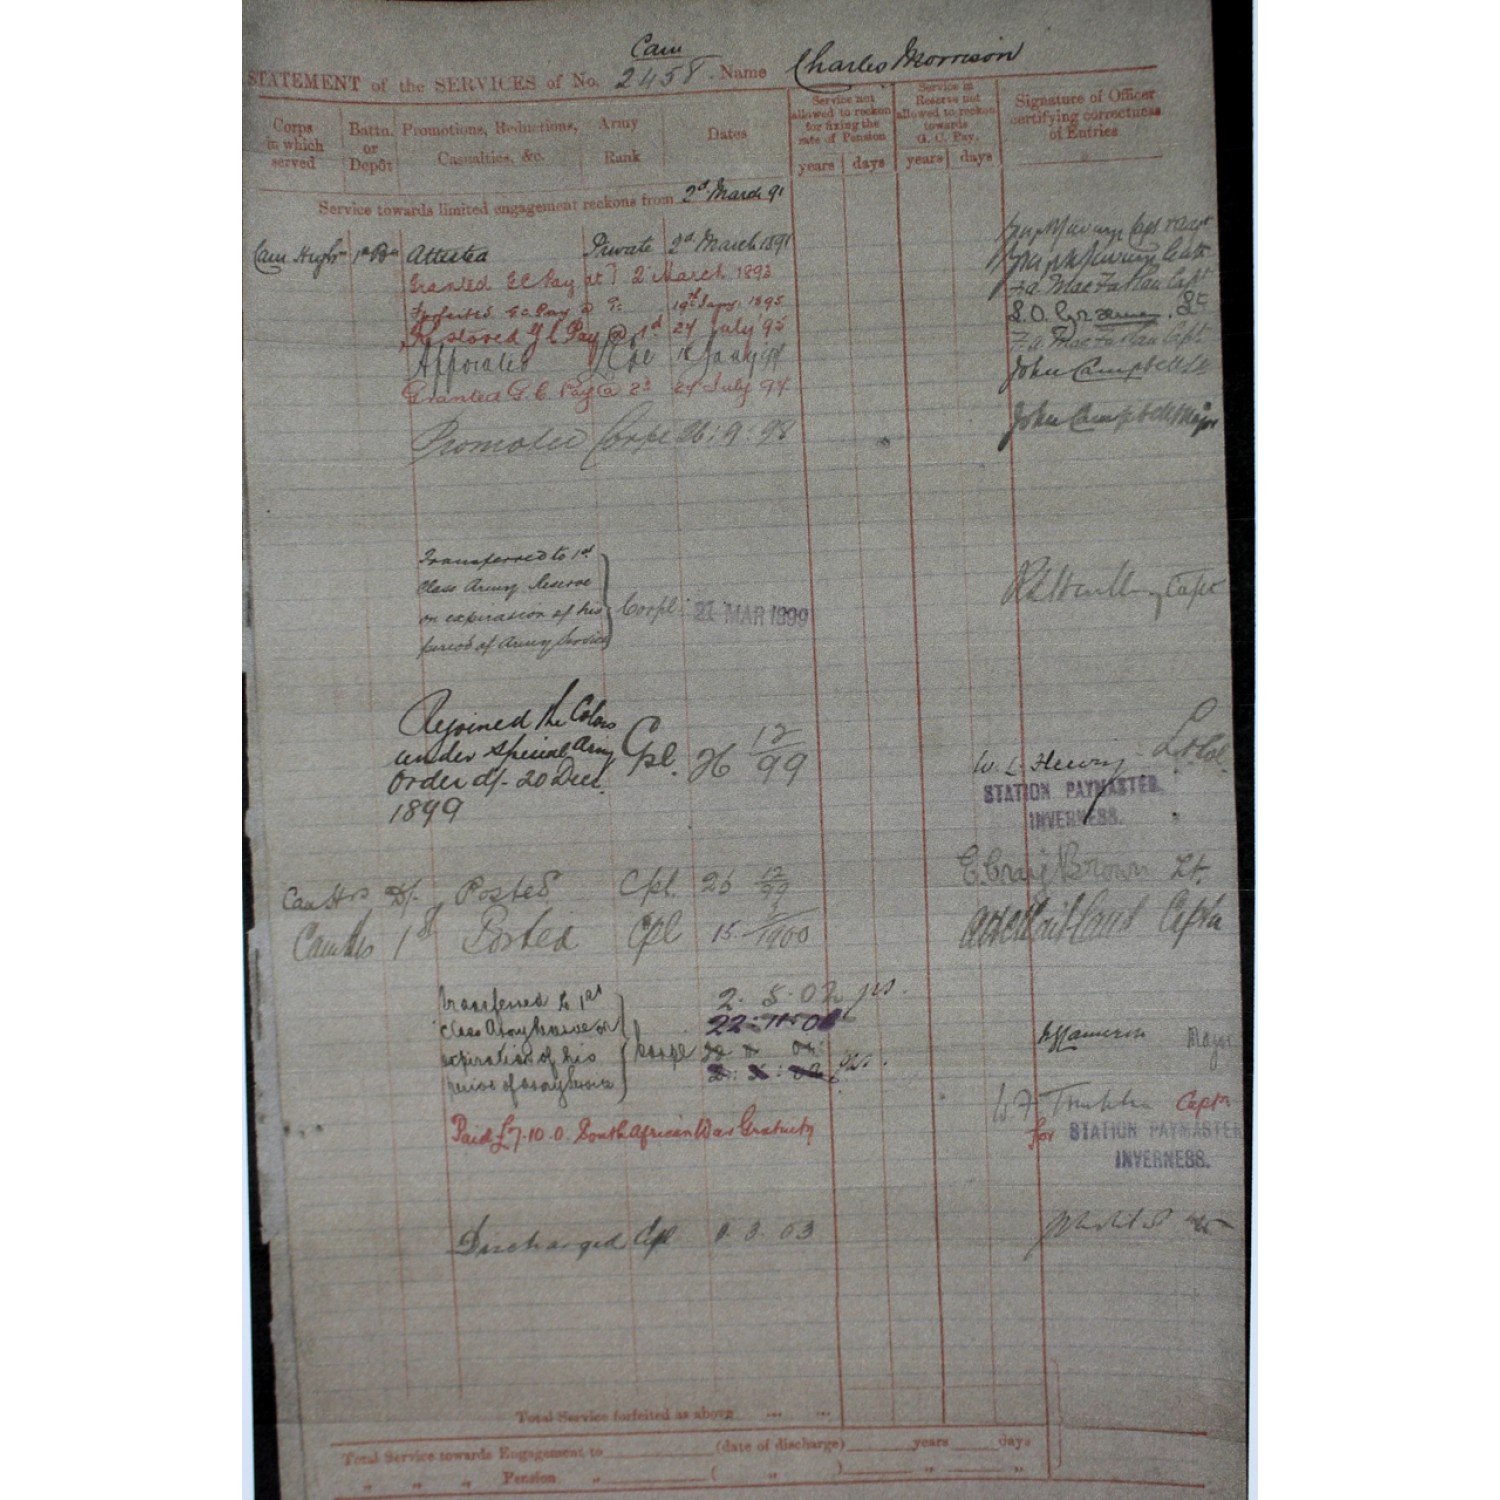 Cam
STATEMENT of the SERVICES of No. 2458. Name Charles Morrison
Corps in which served
Battn. or Depôt
Promotions, Reductions, Casualties, &c.
Army Rank
Dates
Service not allowed to reckon for fixing the rate of Pension
years days
Service in Reserve not allowed to reckon towards G. C. Pay.
years days
Signature of Officer certifying correctness of Entries
Service towards limited engagement reckons from 2d March 91
Cam Highrs 1st Bn Attested Private 2d March 1891
Granted G C Pay at 1 2 March 1893
Forfeited G.C. Pay @ 19th Jany. 1895 F.A. MacFarlan Capt
Restored G C Pay @ 1d 24 July '95 S.O.
Appointed L/Cpl F.A. MacFarlan Capt.
Granted G. C. Pay @ 2d 24 July 97 John Campbell
Promoted Corpl 26:9:98 John Campbell Major
Transferred to 1st
Class Army Reserve
on expiration of his Corpl. MAR 1899 Capt
period of Army Service
Rejoined the Colors
under special Army Cpl. 26 12/99 W. L. Lt. Col.
Order d/- 20 Decr. STATION PAYMASTER,
1899 INVERNESS.
Cam Hrs D/- Posted Cpl. 26 12/99 E. Craig Brown Lt.
Cam Hrs 1st Posted Cpl 15 1900 Captn
transferred to 1st 2. 5. 02
Class Army Reserve on
expiration of his Corpl Cameron Major
period of army service
Paid £7.10.0. South African War Gratuity Captn
for STATION PAYMASTER
INVERNESS.
Discharged Cpl 1. 3. 03
Total Service forfeited as above ... ...
Total Service towards Engagement to (date of discharge) years days
" " " Pension " ( " ) " "